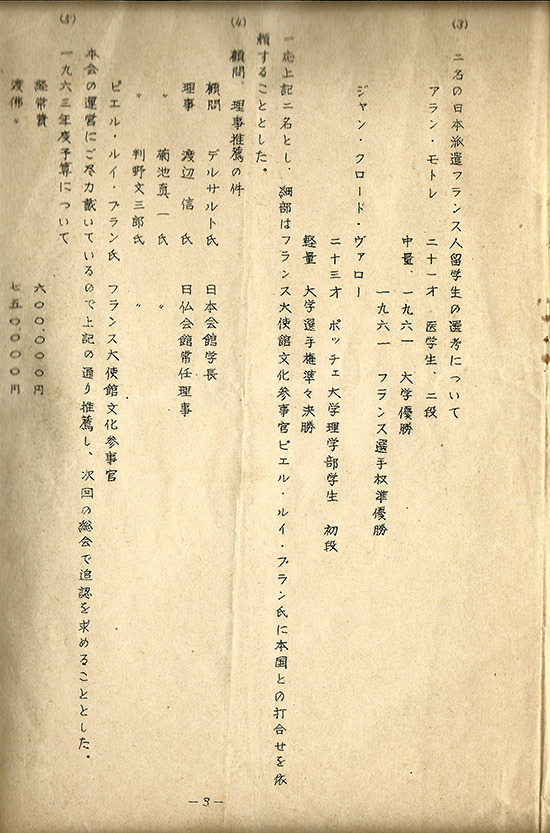 (3) 二名の日本派遣フランス人留学生の選考について
アラン・モトレ 二十一才 医学生、二段
中量、一九六一 大学優勝
一九六一 フランス選手权準優勝
ジャン・クロード・ヴァロー
二十三才 ポッチェ大学理学部学生 初段
軽量 大学選手権準々決勝
一応上記二名とし、細部はフランス大使館文化参事官ピエル・ルイ・ブラン氏に本国との打合せを依
頼することとした。
(4) 顧問、理事推薦の件
顧問 デルサルト氏 日本会館学長
理事 渡辺 信氏 日仏会館常任理事
〃 菊池真一氏 〃
〃 判野文三郎氏 〃
ピエル・ルイ・ブラン氏 フランス大使館文化参事官
本会の運営にご尽力戴いているので上記の通り推薦し、次回の総会で追認を求めることとした。
(5) 一九六三年度予算について
経常費 六〇〇、〇〇〇円
渡佛〃 七五〇、〇〇〇円
—3—